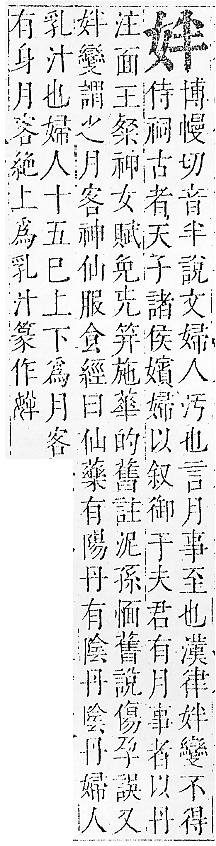 姅
博慢切音半說文婦人汚也言月事至也漢律姅變不得
侍祠古者天子諸侯嬪婦以叙御于夫君有月事者以丹
注面王粲神女賦免兂笄施華的舊註泥孫愐舊說傷孕誤又
姅變謂之月客神仙服食經曰仙藥有陽丹有陰丹陰丹婦人
乳汁也婦人十五巳上下爲月客
有身月客絶上爲乳汁篆作